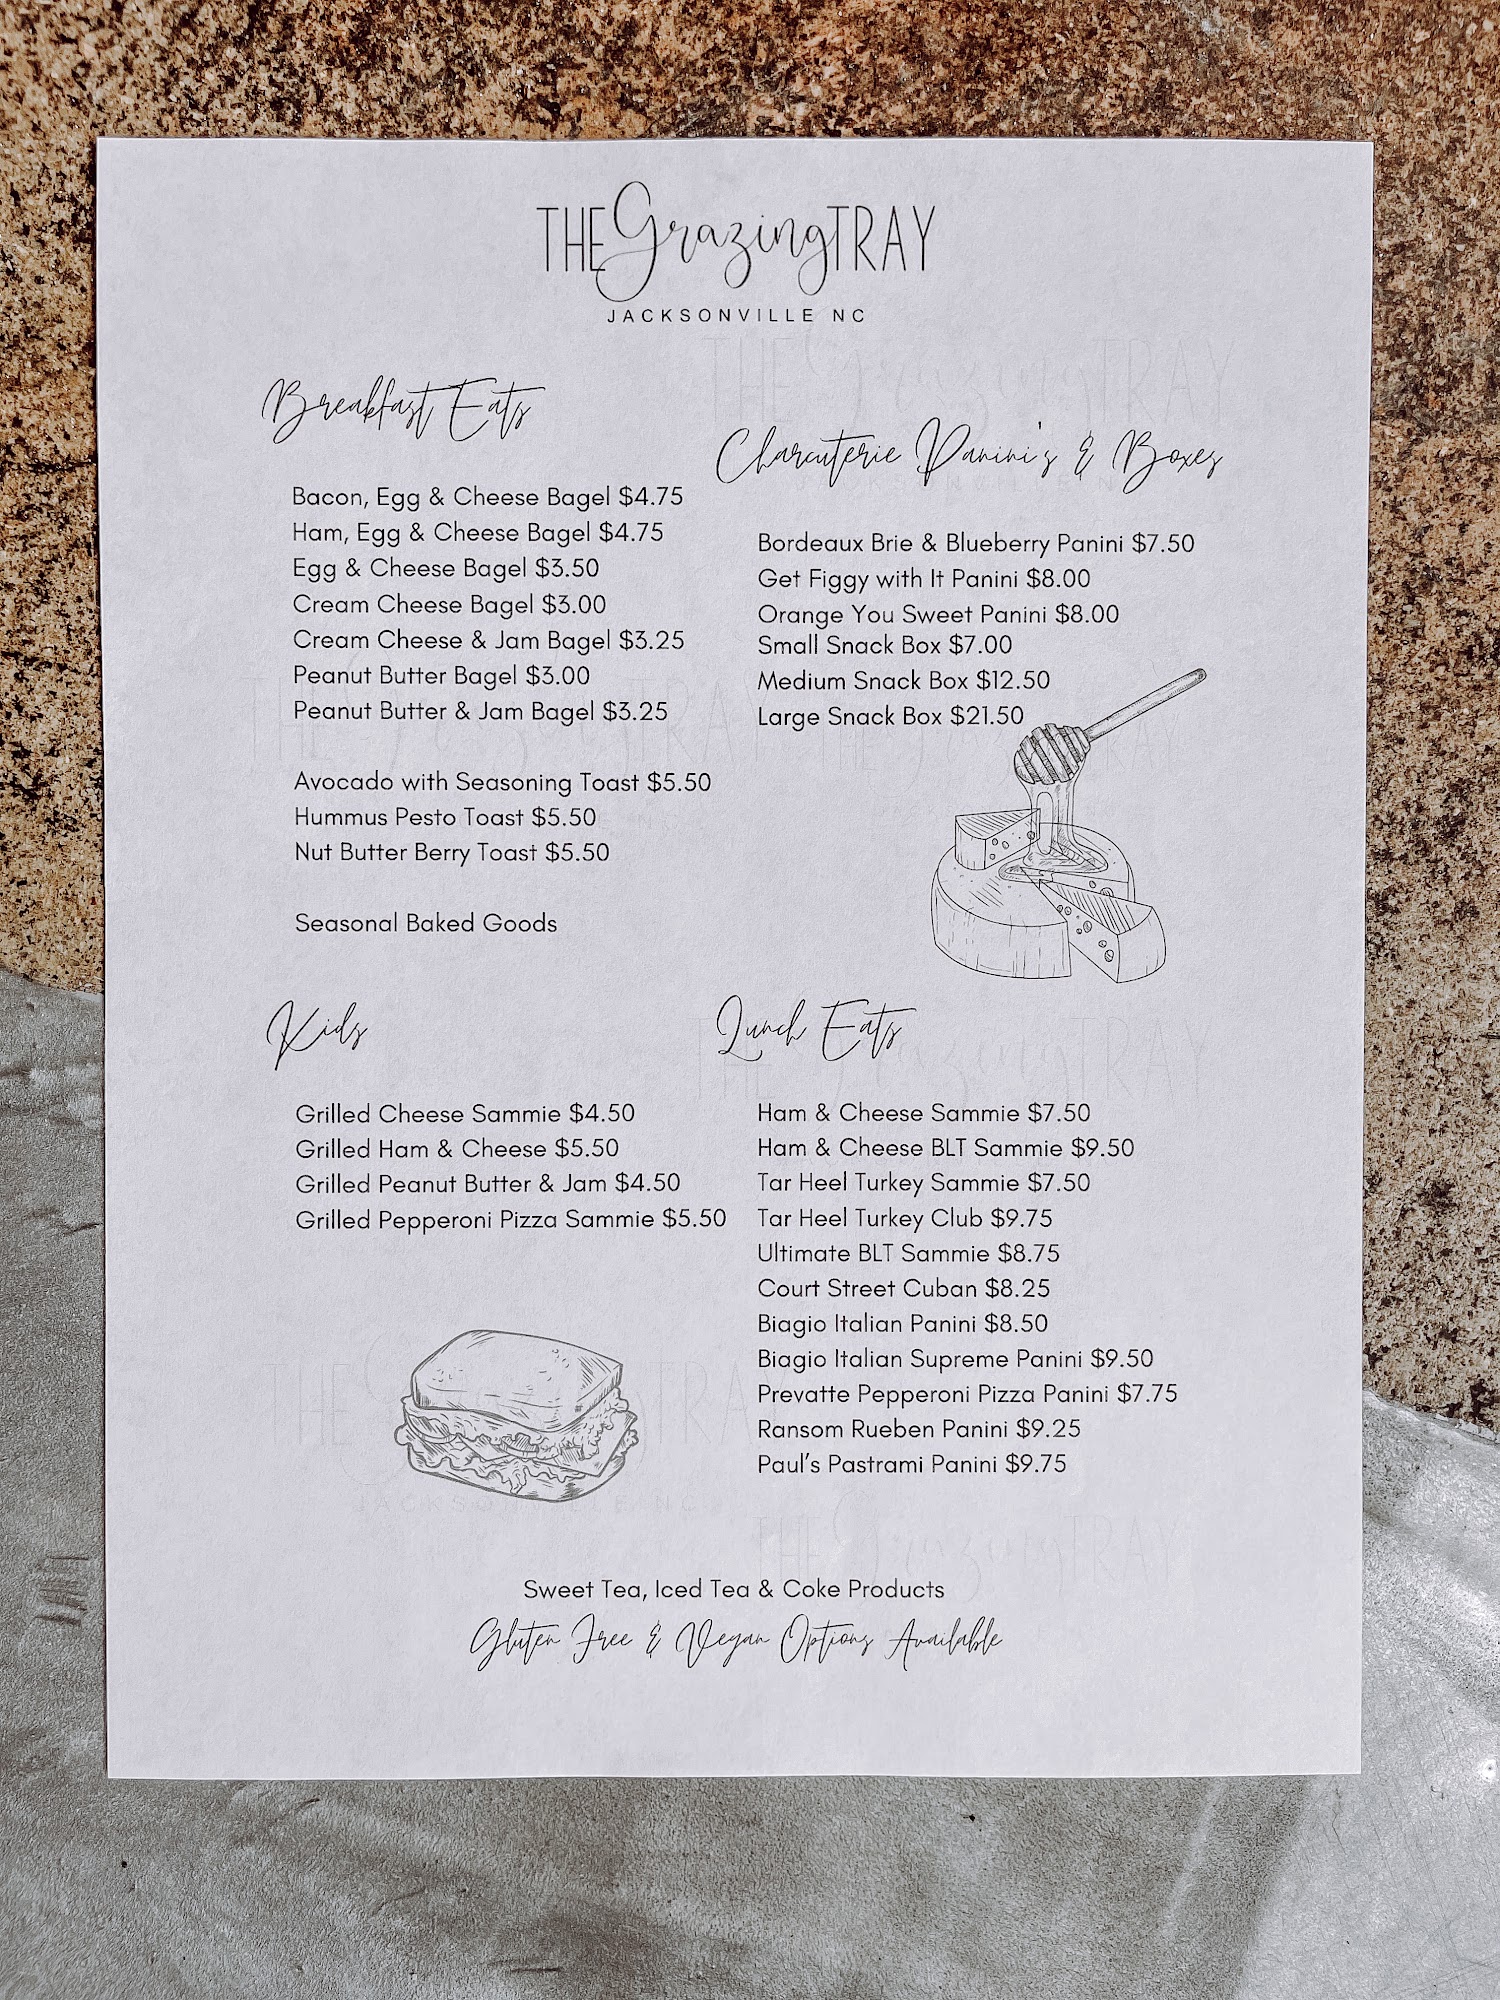 THE Grazing TRAY
JACKSONVILLE NC
Breakfast Eats
Bacon, Egg & Cheese Bagel $4.75
Ham, Egg & Cheese Bagel $4.75
Egg & Cheese Bagel $3.50
Cream Cheese Bagel $3.00
Cream Cheese & Jam Bagel $3.25
Peanut Butter Bagel $3.00
Peanut Butter & Jam Bagel $3.25
Avocado with Seasoning Toast $5.50
Hummus Pesto Toast $5.50
Nut Butter Berry Toast $5.50
Seasonal Baked Goods
Charcuterie Panini's & Boxes
Bordeaux Brie & Blueberry Panini $7.50
Get Figgy with It Panini $8.00
Orange You Sweet Panini $8.00
Small Snack Box $7.00
Medium Snack Box $12.50
Large Snack Box $21.50
Kids
Grilled Cheese Sammie $4.50
Grilled Ham & Cheese $5.50
Grilled Peanut Butter & Jam $4.50
Grilled Pepperoni Pizza Sammie $5.50
Lunch Eats
Ham & Cheese Sammie $7.50
Ham & Cheese BLT Sammie $9.50
Tar Heel Turkey Sammie $7.50
Tar Heel Turkey Club $9.75
Ultimate BLT Sammie $8.75
Court Street Cuban $8.25
Biagio Italian Panini $8.50
Biagio Italian Supreme Panini $9.50
Prevatte Pepperoni Pizza Panini $7.75
Ransom Rueben Panini $9.25
Paul's Pastrami Panini $9.75
Sweet Tea, Iced Tea & Coke Products
Gluten Free & Vegan Options Available